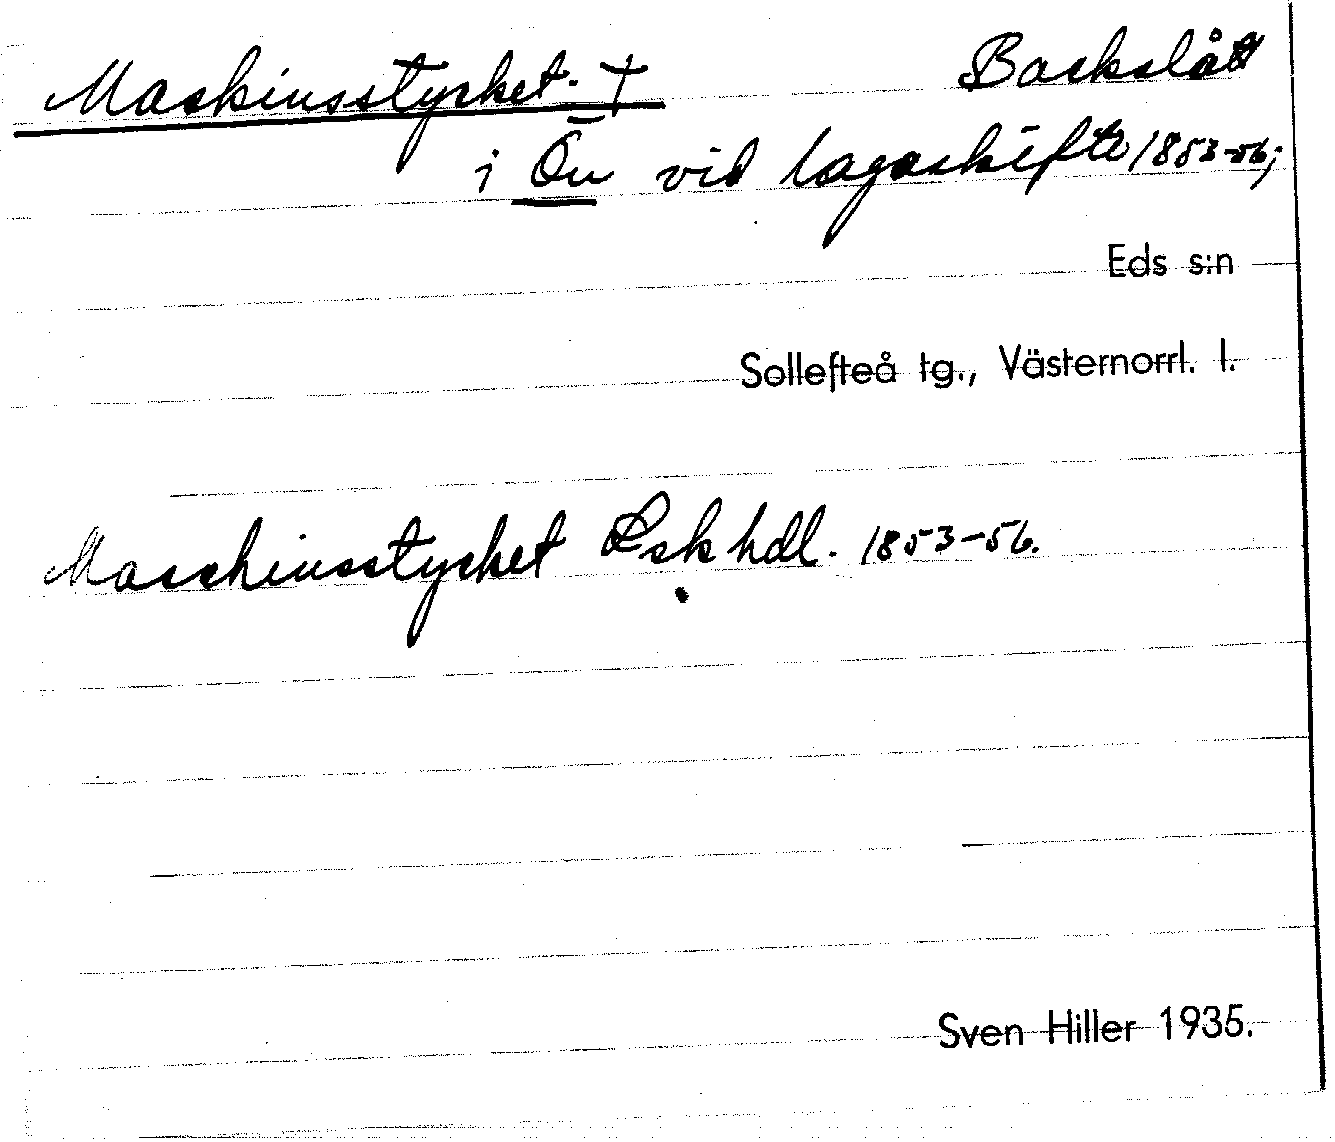 Maskinsstycket. † Backslått
i Ön vid lagaskifte 1853-56;
Eds s:n
Sollefteå tg., Västernorrl. l.
Maschinsstycket Lskhdl. 1853-56.
Sven Hiller 1935.